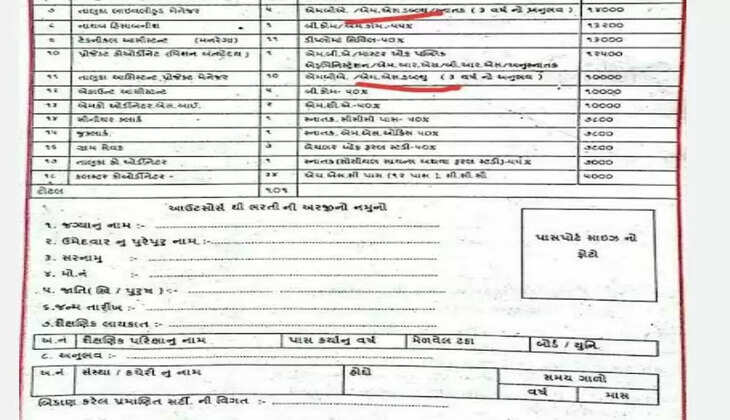 ૭ તાલુકા લાઇવલીહુડ મેનેજર ૫ એમબીએ /એમ.એસ.ડબલ્યુ/સ્નાતક ( ૩ વર્ષ નો અનુભવ ) ૧૪૦૦૦
૮ નાયબ હિસાબનીશ ૧ બી.કોમ/એમ.કોમ-૫૫% ૧૩૨૦૦
૯ ટેકનીકલ આસીસ્ટન્ટ (મનરેગા) ૧૧ ડીપ્લોમાં સિવિલ-૫૦% ૧૩૦૦૦
૧૦ પ્રોજેક્ટ કોઓર્ડીનેટર (મિશન અંત્યોદય) ૧ એમ.બી.એ/માસ્ટર ઓફ પબ્લિક ૧૨૫૦૦
એડમિનિસ્ટ્રેશન/એમ.આર.એસ/બી.આર.એસ/અનુસ્નાતક
૧૧ તાલુકા આસિસ્ટન્ટ પ્રોજેક્ટ મેનેજર ૧૦ એમબીએ /એમ.એસ.ડબલ્યુ ( ૩ વર્ષ નો અનુભવ ) ૧૦૦૦૦
૧૨ એકાઉન્ટ આસીસ્ટન્ટ ૫ બી.કોમ- ૫૦% ૧૦૦૦૦
૧૩ એમકો ઓર્ડીનેટર.એસ.આઈ. ૨ એમ.સી.એ -૫૦% ૧૦૦૦૦
૧૪ સીનીયર કલાર્ક ૧ સ્નાતક, સીસીસી પાસ- ૫૦% ૭૮૦૦
૧૫ જુ.કલાર્ક ૧ સ્નાતક, એમ.એસ.ઓફિસ ૫૦% ૭૮૦૦
૧૬ ગ્રામ સેવક ૭ બેચલર ઓફ રૂરલ સ્ટડી-૫૦% ૭૮૦૦
૧૭ તાલુકા કો ઓર્ડીનેટર ૧ સ્નાતક(સોસીયલ સાયન્સ અથવા રૂરલ સ્ટડી)-૫૫% ૭૦૦૦
૧૮ કલસ્ટર કોઓર્ડીનેટર - ૩૪ એચ.એસ.સી પાસ (૧૨ પાસ ), સી.સી.સી ૫૦૦૦
ટોટલ ૧૦૧
આઉટસોર્સ થી ભરતી ની અરજીનો નમુનો
૧. જગ્યાનું નામ :-
૨. ઉમેદવાર નુ પુરેપુરૂ નામ :-
૩. સરનામુ :-
૪. મો.નં :-
પાસપોર્ટ સાઇઝ નો
ફોટો
૫. જાતિ( સ્ત્રિ / પુરૂષ ) :-
૬.જન્મ તારીખ :-
૭.શૈક્ષણિક લાયકાત :-
અ.નં શૈક્ષણિક પરિક્ષાનુ નામ પાસ કર્યાનુ વર્ષ મેળવેલ ટકા બોર્ડ / યુનિ.
૮. અનુભવ :-
અ.નં સંસ્થા / કચેરી નુ નામ હોદ્દો સમય ગાળો
વર્ષ માસ
બિડાણ કરેલ પ્રમાણિત સર્ટી. ની વિગત :-